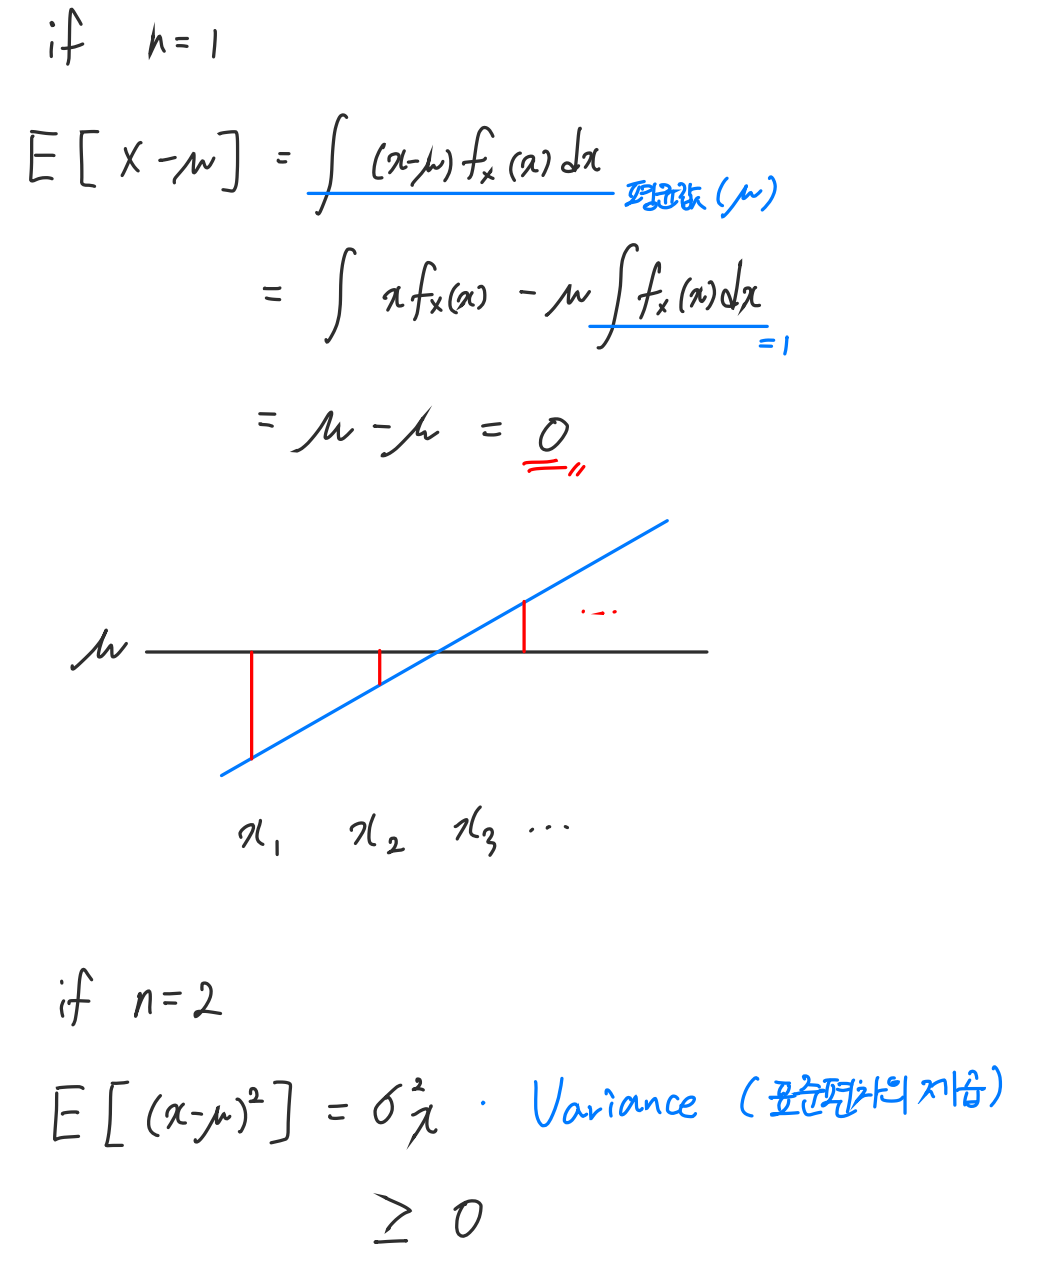 if n=1
E[X-μ] = ∫(x-μ)fₓ(x)dx
평균값(μ)
= ∫ xfₓ(x) - μ∫fₓ(x)dx
=1
= μ-μ = 0
...
μ
x₁ x₂ x₃ ...
if n=2
E[(x-μ)²] = σ²ₓ . Variance (표준편차의 제곱)
≥ 0